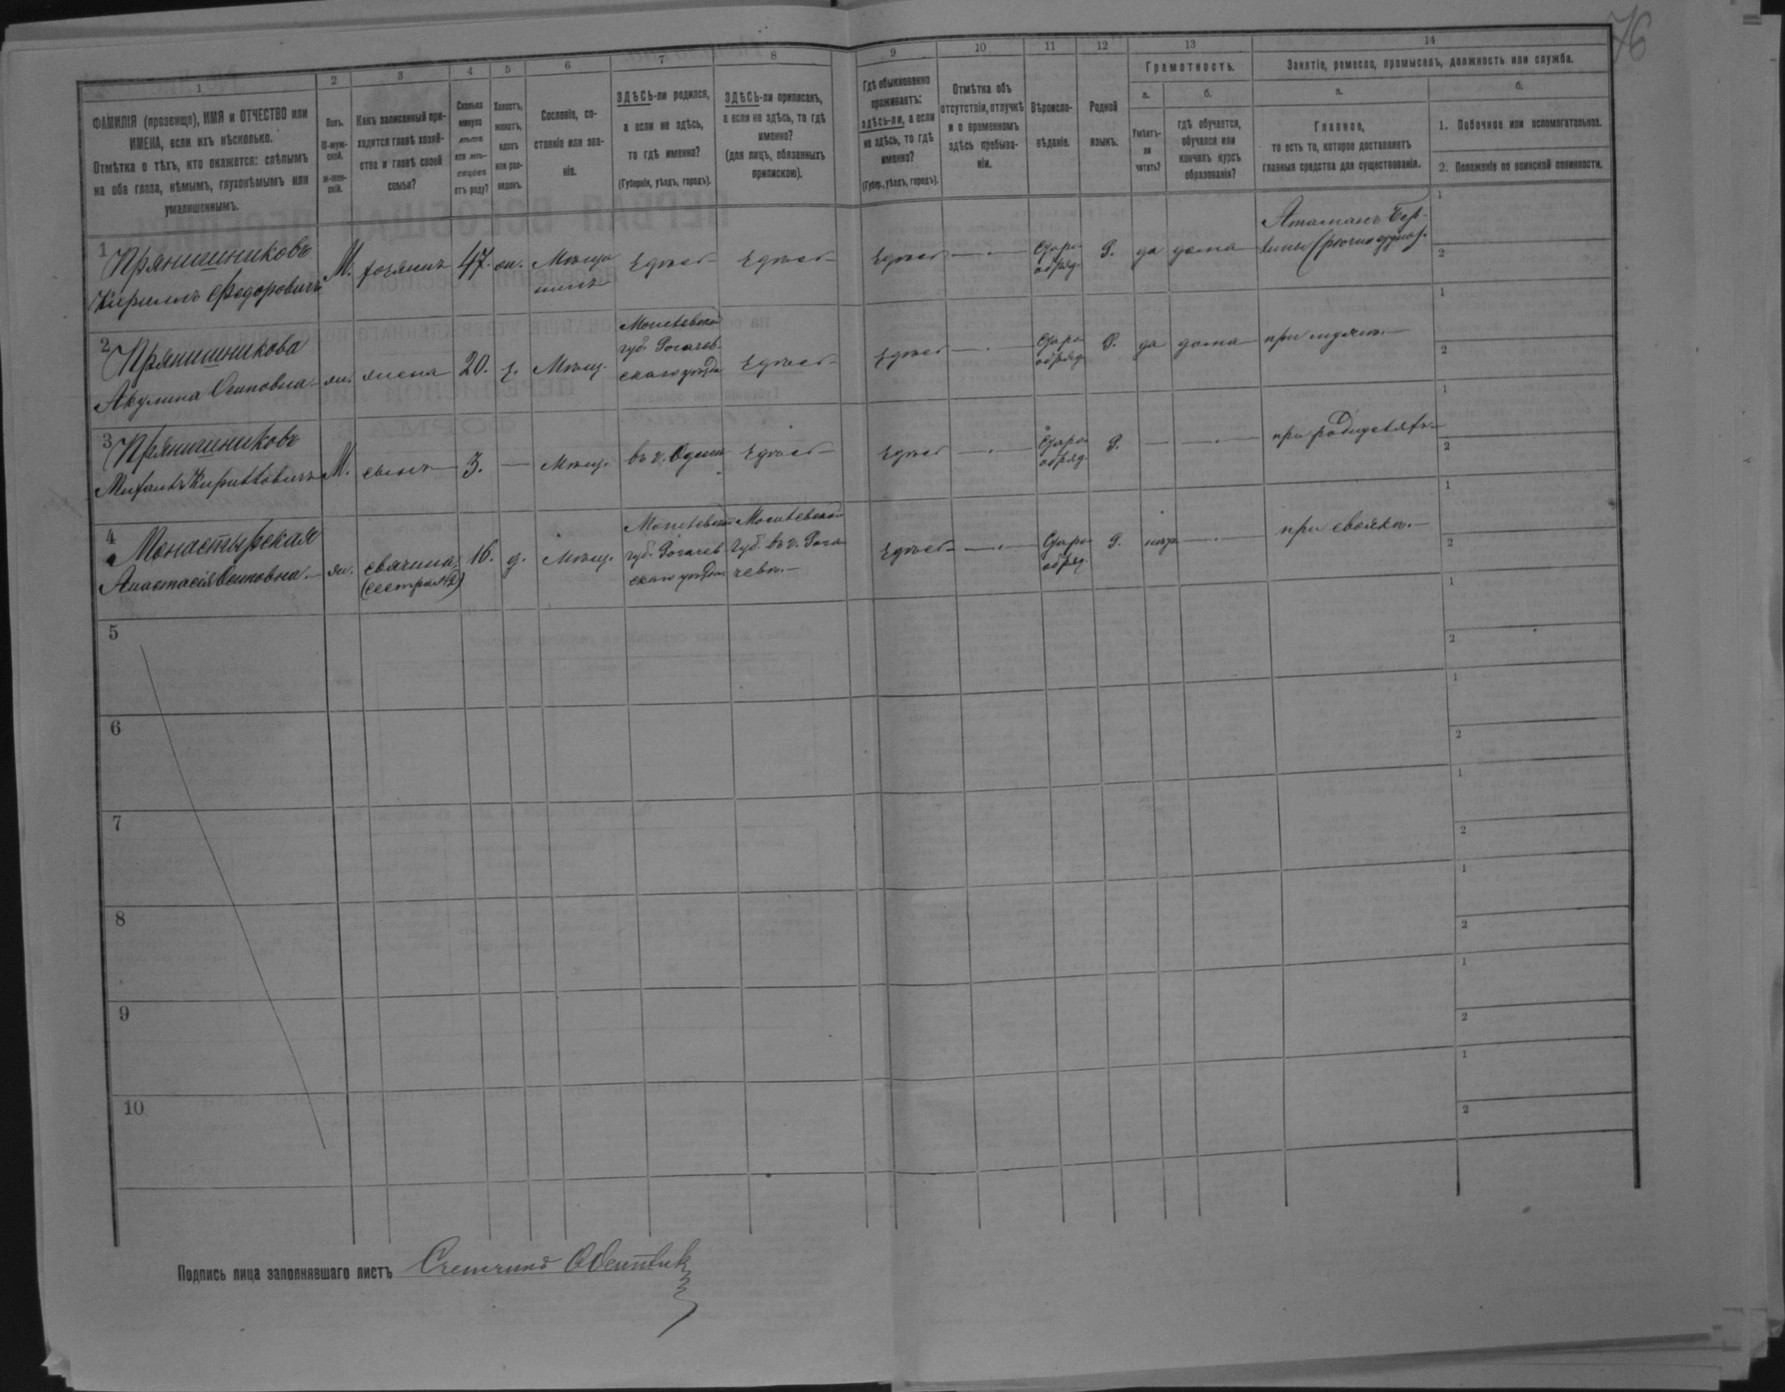 76
1 2 3 4 5 6 7 8 9 10 11 12 13 14
ФАМИЛІЯ (прозвище), ИМЯ и ОТЧЕСТВО или
ИМЕНА, если ихъ нѣсколько.
Отмѣтка о тѣхъ, кто окажется: слѣпымъ
на оба глаза, нѣмымъ, глухонѣмымъ или
умалишеннымъ.
Полъ.
М-муж-
ской.
ж-жен-
скій.
Какъ записанный при-
ходится главѣ хозяй-
ства и главѣ своей
семьи?
Сколько
минуло
лѣтъ
или мѣ-
сяцевъ
отъ роду?
Холостъ,
женатъ,
вдовъ
или раз-
веденъ.
Сословіе, со-
стояніе или зва-
ніе.
ЗДѢСЬ-ли родился,
а если не здѣсь,
то гдѣ именно?
(Губернія, уѣздъ, городъ).
ЗДѢСЬ-ли приписанъ,
а если не здѣсь, то гдѣ
именно?
(для лицъ, обязанныхъ
припискою).
Гдѣ обыкновенно
проживаетъ:
здѣсь-ли, а если
не здѣсь, то гдѣ
именно?
(Губер., уѣздъ, городъ).
Отмѣтка объ
отсутствіи, отлучкѣ
и о временномъ
здѣсь пребыва-
ніи.
Вѣроиспо-
вѣданіе.
Родной
языкъ.
Грамотность.
а.
Умѣетъ-
ли
читать?
б.
гдѣ обучается,
обучался или
кончилъ курсъ
образованія?
Занятіе, ремесло, промыселъ, должность или служба.
а.
Главное,
то есть то, которое доставляетъ
главныя средства для существованія.
б.
1. Побочное или вспомогательное.
2. Положеніе по воинской повинности.
1 Прянишниковъ
Кириллъ Федоровичъ
М. хозяинъ 47. Мѣща
нинъ
здѣсь здѣсь здѣсь
Старо
обряд.
Р. да дома
Атаманъ
1
2
2 Прянишникова
Акулина Осиповна
ж. жена 20. з. Мѣщ.
Могилевской
губ. Рогачев
скаго уѣзда
здѣсь здѣсь
Старо
обряд
Р. да дома при мужѣ.
1
2
3 Прянишниковъ
Михаилъ Кирилловичъ
М. сынъ 3. Мѣщ. въ г. Одессѣ здѣсь здѣсь
Старо
обряд
Р. при родителяхъ
1
2
4 Монастырская
Анастасія Осиповна.
ж. свячина
(сестра №2)
16. д. Мѣщ.
Могилевской
губ. Рогачев
скаго уѣзда
Могилевской
губ. въ г. Рога
чевѣ.
здѣсь
Старо
обряд
Р. при свояке.
1
2
5
1
2
6
1
2
7
1
2
8
1
2
9
1
2
10
1
2
Подпись лица заполнявшаго листъ Счетчикъ